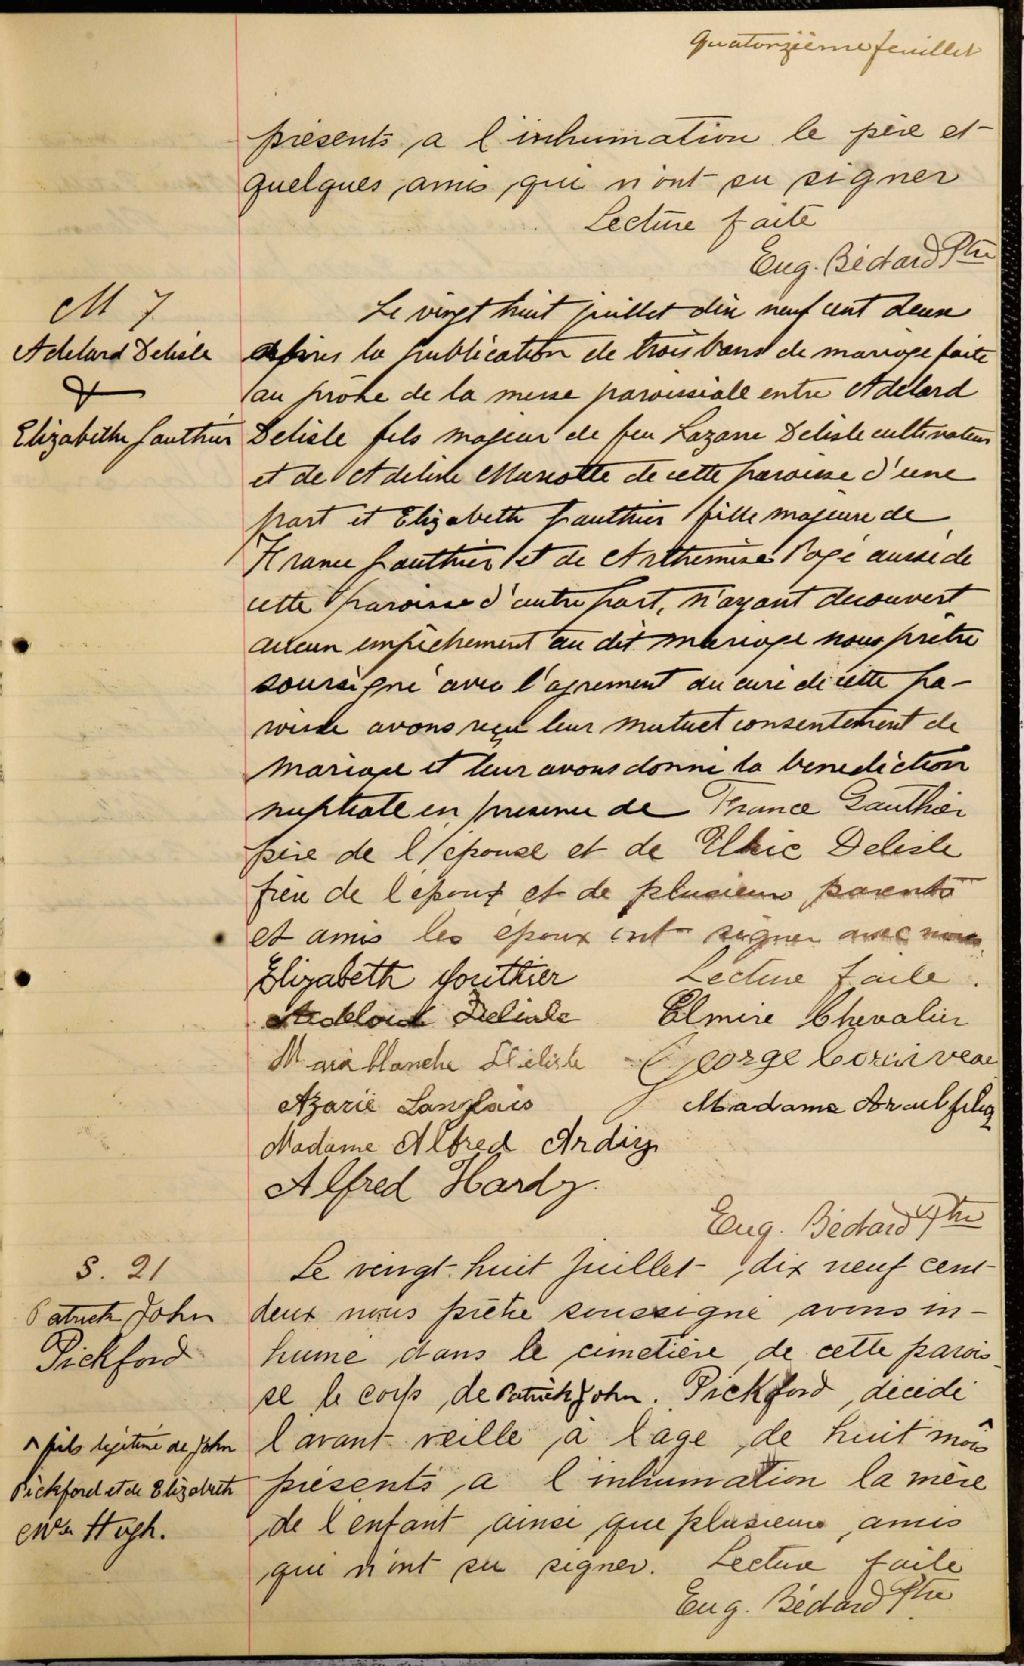 Quatorzième feuillet
présents a l'inhumation le père et
quelques amis qui n'ont su signer
Lecture faite
Eug. Bédard Ptre
M 7
Adelard Delisle
&
Elizabeth Gauthier
Le vingt huit juillet dix neuf cent deux
après la publication de trois bans de mariage faite
au prône de la messe paroissiale entre Adelard
Delisle fils majeur de feu Lazare Delisle cultivateur
et de Adeline Marcotte de cette paroisse d'une
part et Elizabeth Gauthier fille majeure de
France Gauthier et de Arthemise Pagé aussi de
cette paroisse d'autre part, n'ayant decouvert
aucun empêchement au dit mariage nous prêtre
soussigné avec l'agrement du curé de cette pa-
roisse avons reçu leur mutuel consentement de
mariage et leur avons donné la benediction
nuptiale en presence de France Gauthier
père de l'épouse et de Ulric Delisle
frère de l'époux et de plusieurs parents
et amis les époux ont signer avec nous.
Elizabeth Gouthier Lecture faite.
Adelard Delisle Elmire Chevalier
Maria blanche Delisle George Corriveau
Azarie Langlais Madame
Madame Alfred Ardy
Alfred Hardy.
Eug. Bédard Ptre
S. 21
Patrick John
Pickford
^ fils légitime de John
Pickford et de Elizabeth
Hugh.
Le vingt-huit Juillet dix neuf cent
deux nous prêtre soussigné avons in-
humé dans le cimetière de cette parois-
se le corps de Patrick John. Pickford décédé
l'avant veille à l'age de huit mois ^
présents a l'inhumation la mère
de l'enfant ainsi que plusieurs amis
qui n'ont su signer. Lecture faite
Eug. Bédard Ptre